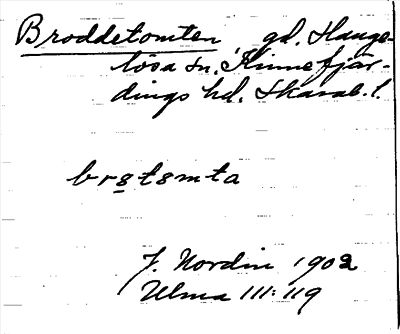 Broddetomten gd. Hange-
lösa sn, Kinnefjär-
dings hd. Skarab. l.
brstsmta
J. Nordin 1902
Ulma 111:119